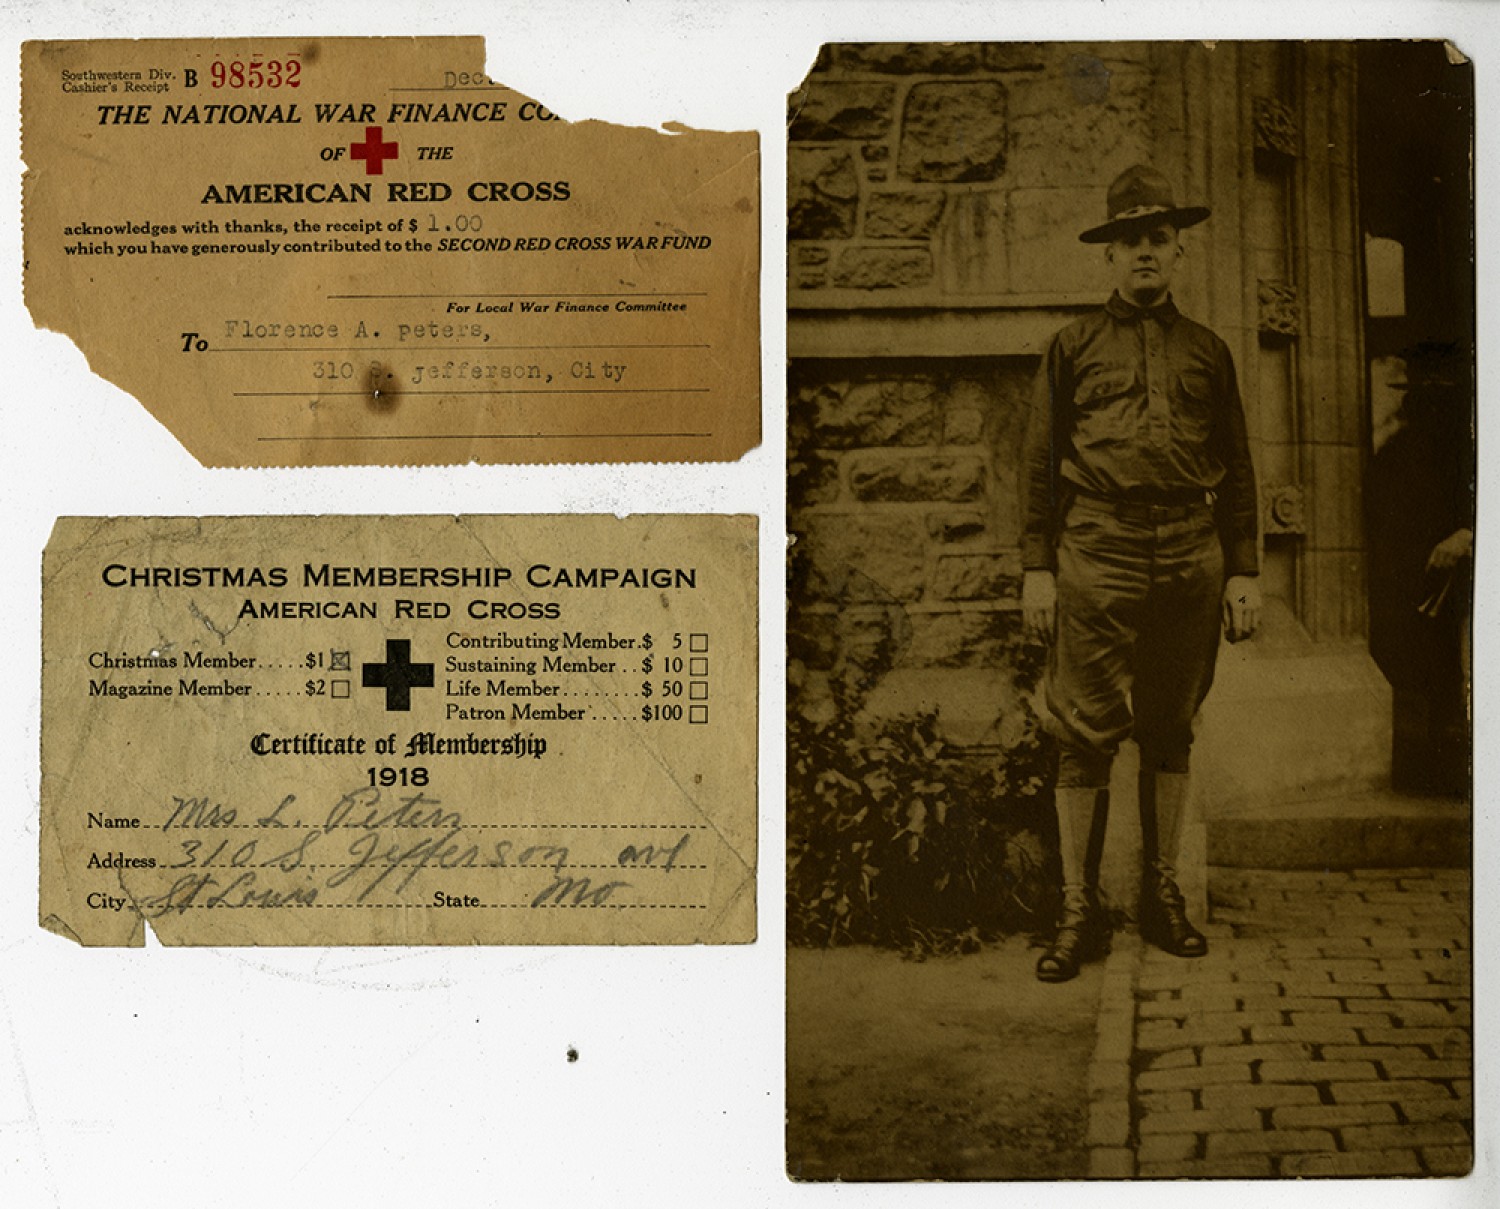 Southwestern Div.
Cashier's Receipt B 98532
THE NATIONAL WAR FINANCE
OF THE
AMERICAN RED CROSS
acknowledges with thanks, the receipt of $ 1.00
which you have generously contributed to the SECOND RED CROSS WAR FUND
For Local War Finance Committee
To Florence A. peters,
310 S. jefferson, City
CHRISTMAS MEMBERSHIP CAMPAIGN
AMERICAN RED CROSS
Christmas Member.....$1
Magazine Member.....$2
Contributing Member.$ 5
Sustaining Member..$ 10
Life Member........$ 50
Patron Member.....$100
Certificate of Membership
1918
Name Mrs L. Peters
Address 310 S. Jefferson ave
City St Louis State Mo.